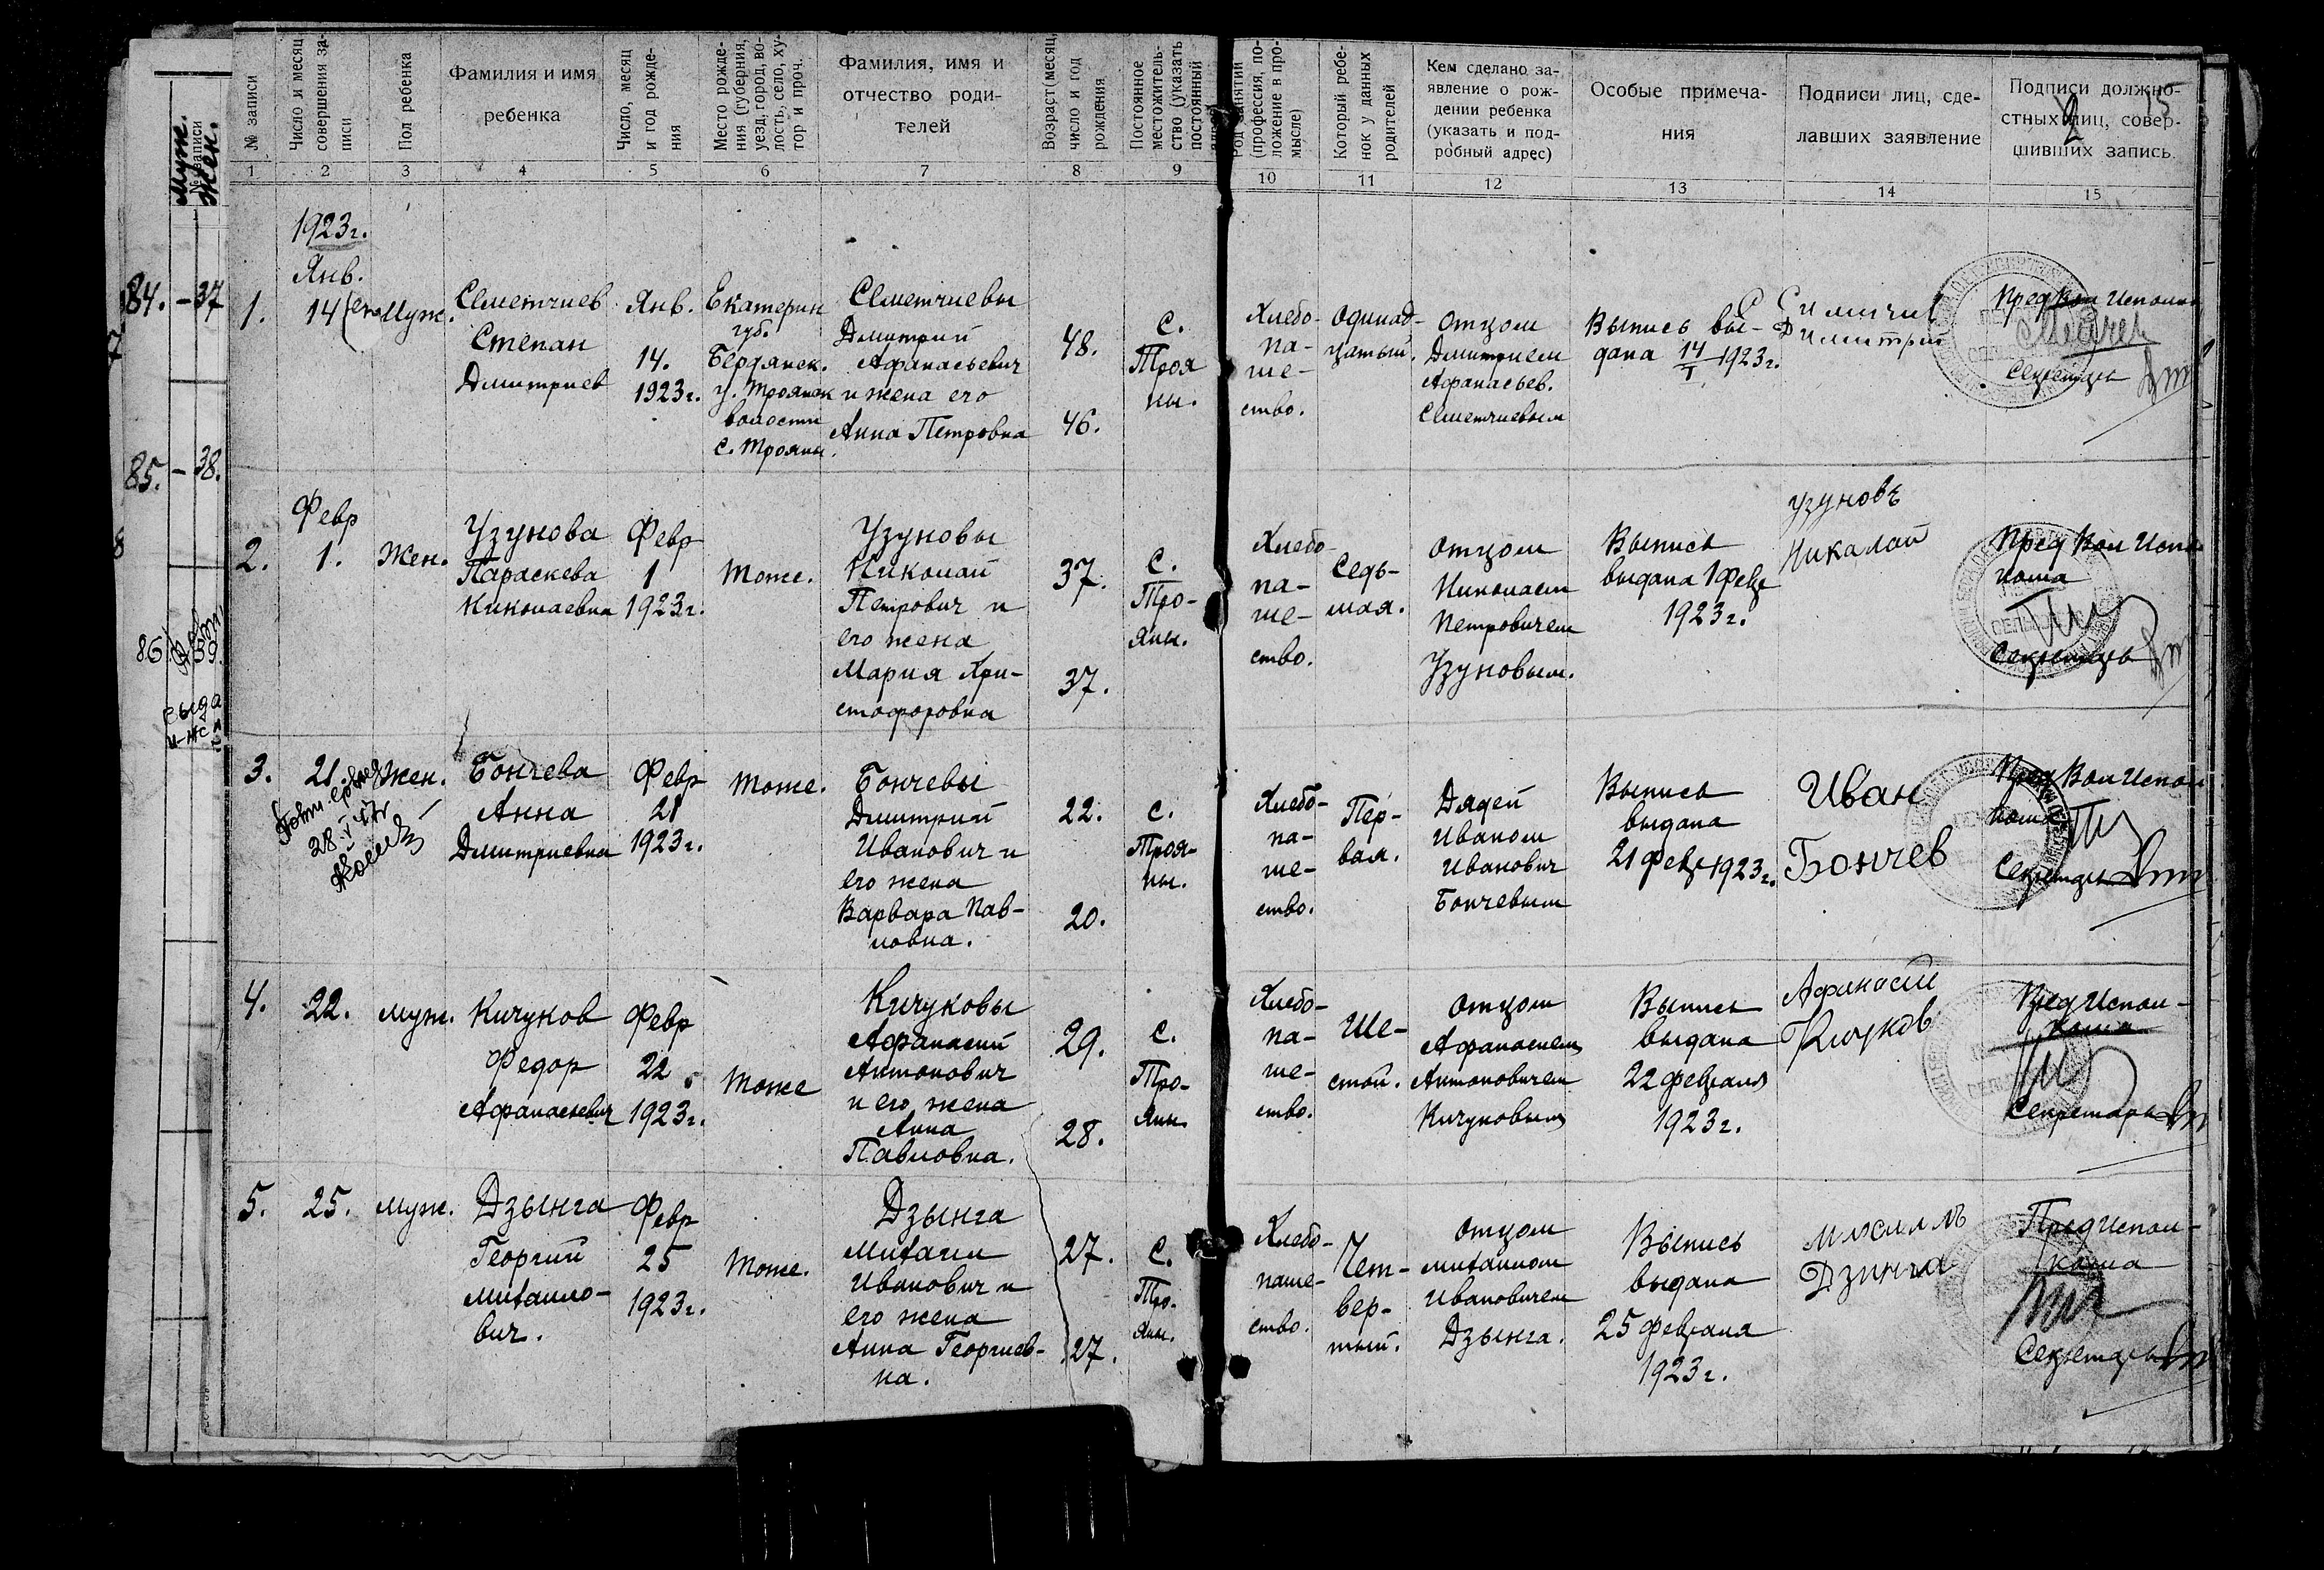 № записи
Число и месяц совершения записи
Пол ребенка
Фамилия и имя
ребенка
Число, месяц и год рождения
Место рождения (губерния, уезд, город, волость, село, хутор и проч.
Фамилия, имя и
отчество роди-
телей
Возраст (месяц, число и год рождения
Постоянное местожительство (указать постоянный
Род занятий (профессия, положение в промысле)
Который ребенок у данных родителей
Кем сделано за-
явление о рож-
дении ребенка
(указать и под-
робный адрес)
Особые примеча-
ния
Подписи лиц, сде-
лавших заявление
Подписи должно-
стных лиц, совер-
шивших запись.
1 2 3 4 5 6 7 8 9 10 11 12 13 14 15
Муж.
№ записи
Жен.
84. – 37
85. – 38.
86
1923г.
Янв.
1.
14
Муж.
Степан
Дмитриев
Янв.
14.
1923г.
Екатерин
губ.
Бердянск.
у. Троянск
волости
с. Трояны.
Дмитрий
Афанасьевич
и жена его
Анна Петровна
48.
46.
с.
Троя
ны.
Хлебо-
па-
ше-
ство.
Одинад-
цатый.
Отцом
Дмитрием
Афанасьев.
Выпись вы-
дана 14/I 1923г.
Секретарь
Февр
2.
1.
Жен.
Узунова
Параскева
Николаевна
Февр
1
1923г.
Тоже.
Узуновы
Николай
Петрович и
его жена
Мария Хри-
стофоровна
37.
37.
с.
Тро-
яны.
Хлебо-
па-
ше-
ство.
Седь-
мая.
Отцом
Николаем
Петровичем
Узуновым.
Выпись
выдана 1 февр
1923г.
Узуновъ
Никалай
Пред Вол Испол
кома
Секретарь
3.
21.
28 V 47г
Жен.
Бончева
Анна
Дмитриевна
Февр
21
1923г.
Тоже.
Бончевы
Дмитрий
Иванович и
его жена
Варвара Пав-
ловна.
22.
20.
с.
Троя-
ны.
Хлебо-
па-
ше-
ство.
Пер-
вая.
Дядей
Иваном
Иванович
Бончевым
Выпись
выдана
21 февр 1923г.
Иван
Бончев
Пред Вол Испол
кома
Секретарь
4.
22.
муж.
Кичуков
Федор
Афанасьевич
Февр
22
1923г.
Тоже
Кичуковы
Афанасий
Антонович
и его жена
Анна
Павловна.
29.
28.
с.
Тро-
яны.
Хлебо-
па-
ше-
ство.
Ше-
стой.
Отцом
Афанасием
Антоновичем
Кичуковым
Выпись
выдана
22 февраля
1923г.
Афинасий
Кичуков
Пред Испол-
кома
Секретарь
5.
25.
муж.
Дзынга
Георгий
Михайло-
вич.
Февр
25
1923г.
Тоже.
Дзынга
Михаил
Иванович и
его жена
Анна Георгиев-
на.
27.
27.
с.
Тро-
яны.
Хлебо-
паше-
ство.
Чет-
вер-
тый.
Отцом
Михаилом
Ивановичем
Дзынга.
Выпись
выдана
25 февраля
1923г.
Дзинга
Пред Испол-
кома
Секретарь